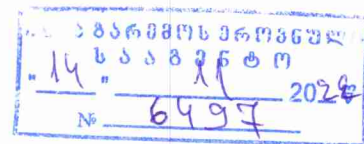 გარემოს ეროვნულ
სააგენტო
"14" 11 202
№ 6497